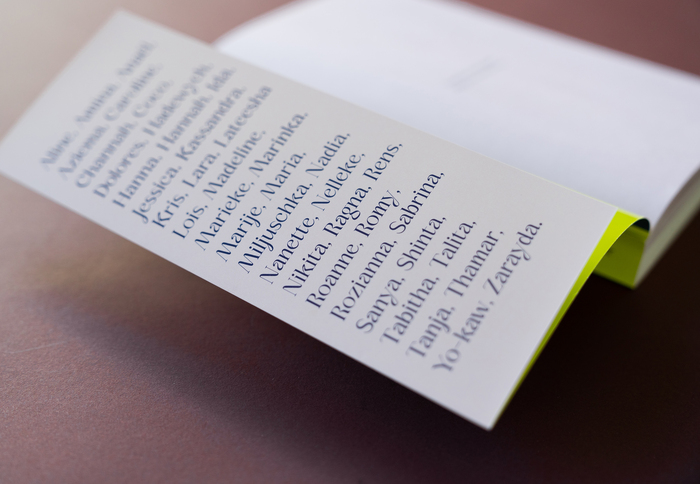 Aline, Amina, Anaël,
Aziema, Caroline,
Channah, Coco,
Dolores, Hadewych,
Hanna, Hannah, Ida,
Jessica, Kassandra,
Kris, Lara, Lateesha
Lois, Madeline,
Marieke, Marinka,
Marije, Maria,
Miljuschka, Nadia,
Nanette, Nelleke,
Nikita, Ragna, Rens,
Roanne, Romy,
Rozianna, Sabrina,
Sanya, Shinta,
Tabitha, Talita,
Tanja, Thamar,
Yo-kaw, Zarayda.